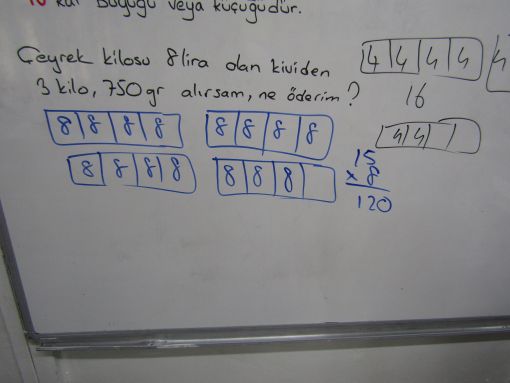 10 kat büyüğü veya küçüğüdür.
Çeyrek kilosu 8 lira olan kividen
3 kilo, 750 gr alırsam, ne öderim?
4 4 4 4
16
4 4
8 8 8 8
8 8 8 8
8 8 8 8
8 8 8
15
x 8
120